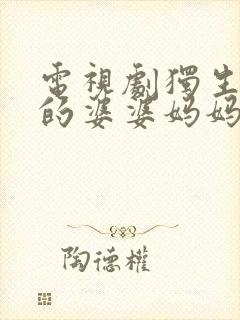 電視劇獨生
的婆婆妈妈
陶德權